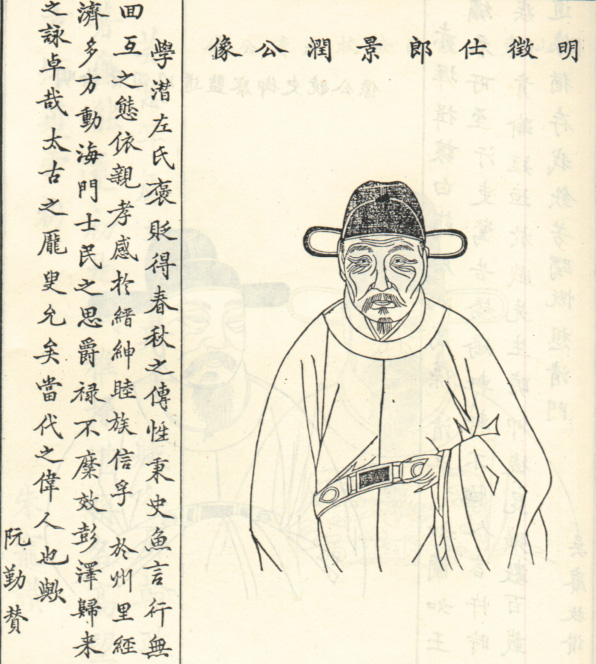 明徵仕郎景潤公像
學潜左氏褒貶得春秋之傳性秉史魚言行無
囬互之態依親孝感於縉紳睦族信孚於州里經
濟多方動海門士民之思爵祿不縻效彭澤歸来
之詠卓哉太古之龐叟允矣當代之偉人也歟
阮勤賛